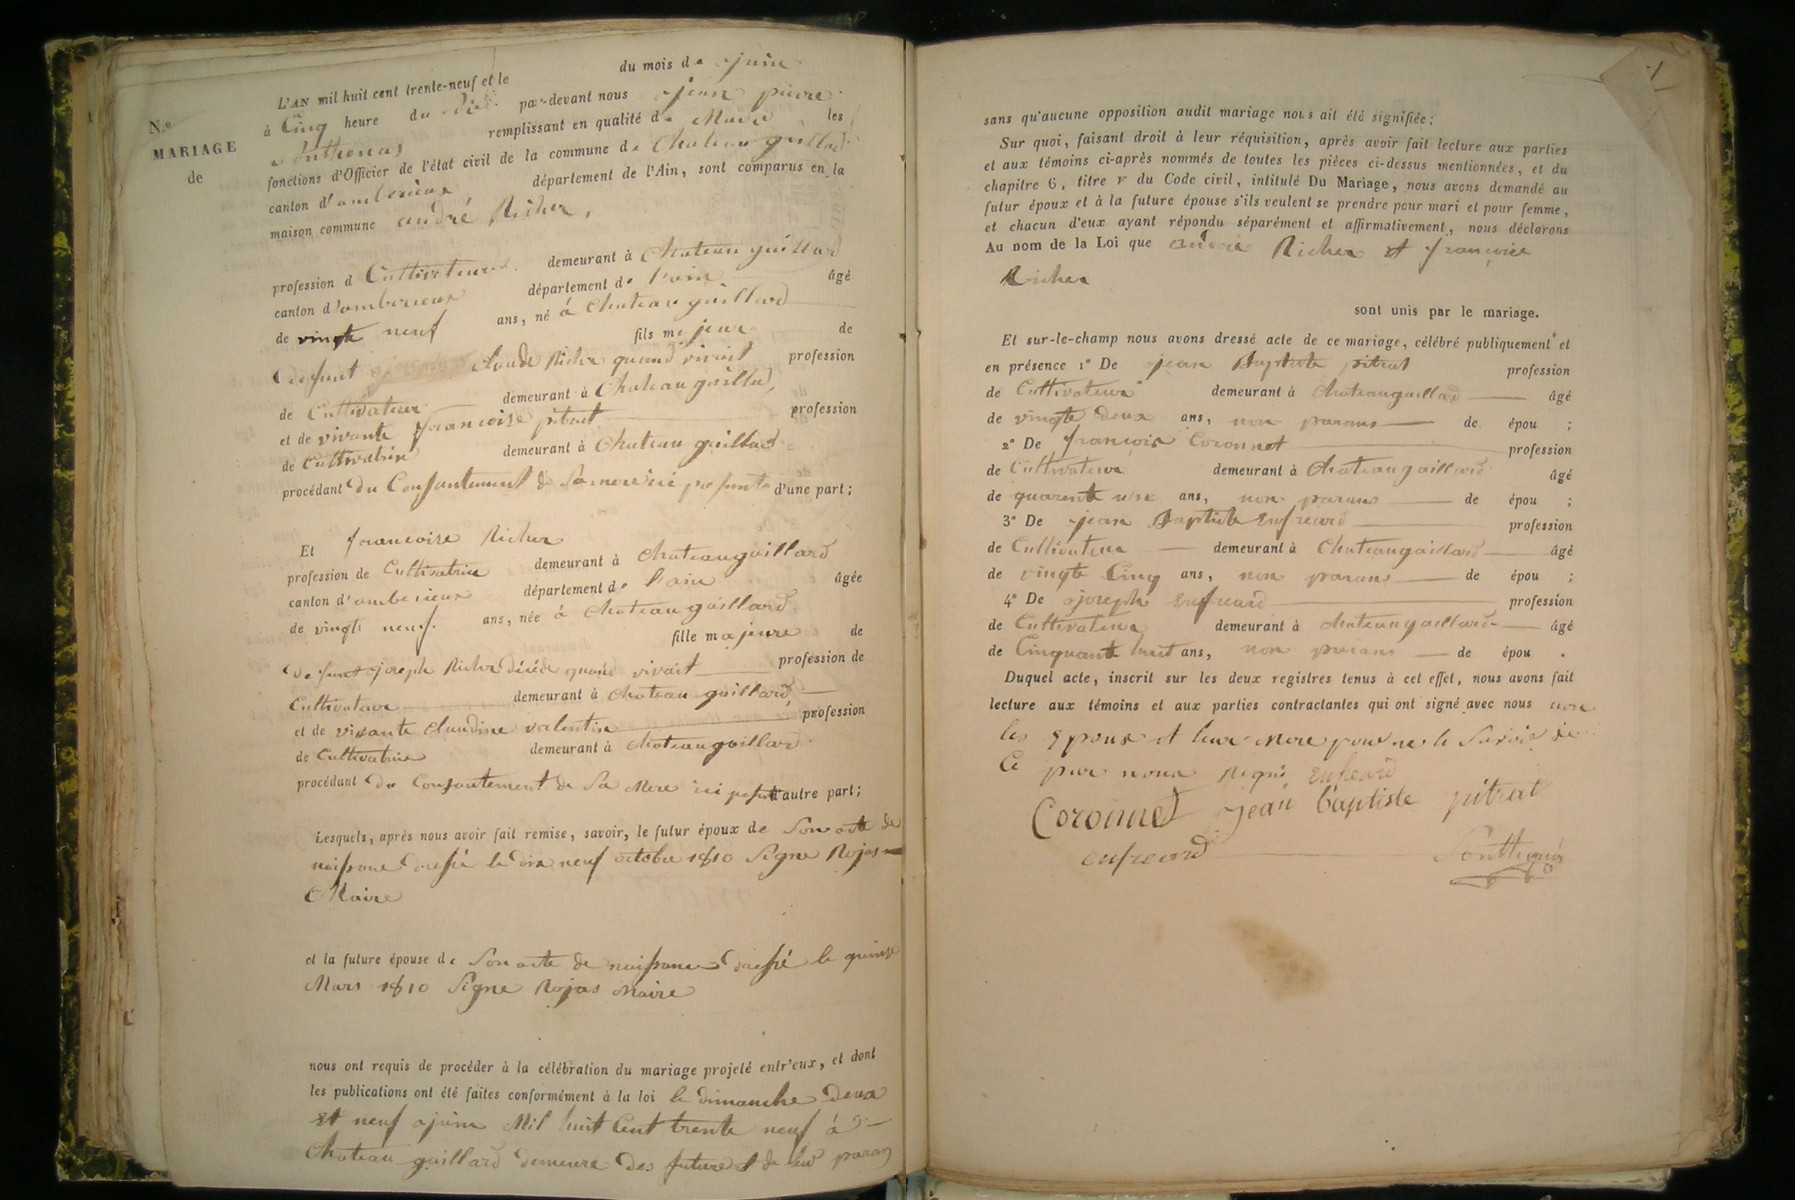 N.o
MARIAGE
de
L'AN mil huit cent trente-neuf et le du mois de juin
à Cinq heure du par-devant nous jean pierre
remplissant en qualité de Maire les
fonctions d'Officier de l'état civil de la commune de Chateau gaillard
canton d'amberieux département de l'Ain, sont comparus en la
maison commune andré Richer,
profession d Cultivateur demeurant à Chateau gaillard
canton d'amberieux département de l'ain âgé
de vingt neuf ans, né à Chateau gaillard
fils majeur de
defunt Claude Richer quand vivait profession
de Cultivateur demeurant à Chateau gaillard,
et de vivante francoise pitrat profession
de Cultivatrice demeurant à Chateau gaillard
procédant du Consantement de Sa mere ici presente d'une part;
Et francoise Richer
profession de Cultivatrice demeurant à Chateaugaillard
canton d'amberieux département de l'ain âgée
de vingt neuf ans, née à Chateaugaillard
fille majeure de
defunt joseph Richer décédé quand vivait profession de
Cultivateur demeurant à Chateau gaillard,
et de vivante Claudine valentin profession
de Cultivatrice demeurant à Chateaugaillard
procédant du Consantement de Sa Mere ici autre part;
Lesquels, après nous avoir fait remise, savoir, le futur époux de Son acte de
naissance dressé le dix neuf octobre 1810 Signe Rojas
Maire
et la future épouse de Son acte de naissance dressé le quinze
Mars 1810 Signe Rojas Maire
nous ont requis de procéder à la célébration du mariage projeté entr'eux, et dont
les publications ont été faites conformément à la loi le dimanche deux
et neuf ajuin Mil huit Cent trente neuf à
Chateau gaillard demeure des futures et de leur paran
sans qu'aucune opposition audit mariage nous ait été signifiée;
Sur quoi, faisant droit à leur réquisition, après avoir fait lecture aux parties
et aux témoins ci-après nommés de toutes les pièces ci-dessus mentionnées, et du
chapitre 6, titre v du Code civil, intitulé Du Mariage, nous avons demandé au
futur époux et à la future épouse s'ils veulent se prendre pour mari et pour femme,
et chacun d'eux ayant répondu séparément et affirmativement, nous déclarons
Au nom de la Loi que andré Richer et françoise
Richer
sont unis par le mariage.
Et sur-le-champ nous avons dressé acte de ce mariage, célébré publiquement et
en présence 1° De jean Baptiste pitrat profession
de Cultivateur demeurant à Chateaugaillard âgé
de vingte deux ans, non parans de épou ;
2° De françois Coronnet profession
de Cultivateur demeurant à Chateaugaillard âgé
de quarente ans, non parans de épou ;
3° De jean Baptiste Enfreard profession
de Cultivateur demeurant à Chateaugaillard âgé
de vingte Cinq ans, non parans de épou ;
4° De joseph Enfreard profession
de Cultivateur demeurant à Chateaugaillard âgé
de Cinquante huit ans, non parans de épou .
Duquel acte, inscrit sur les deux registres tenus à cet effet, nous avons fait
lecture aux témoins et aux parties contractantes qui ont signé avec nous non
les Epoux et leur Mere pour ne le Savoir de
Ce par nous Enfreard
Coronnet jean baptiste pitrat
enfreard